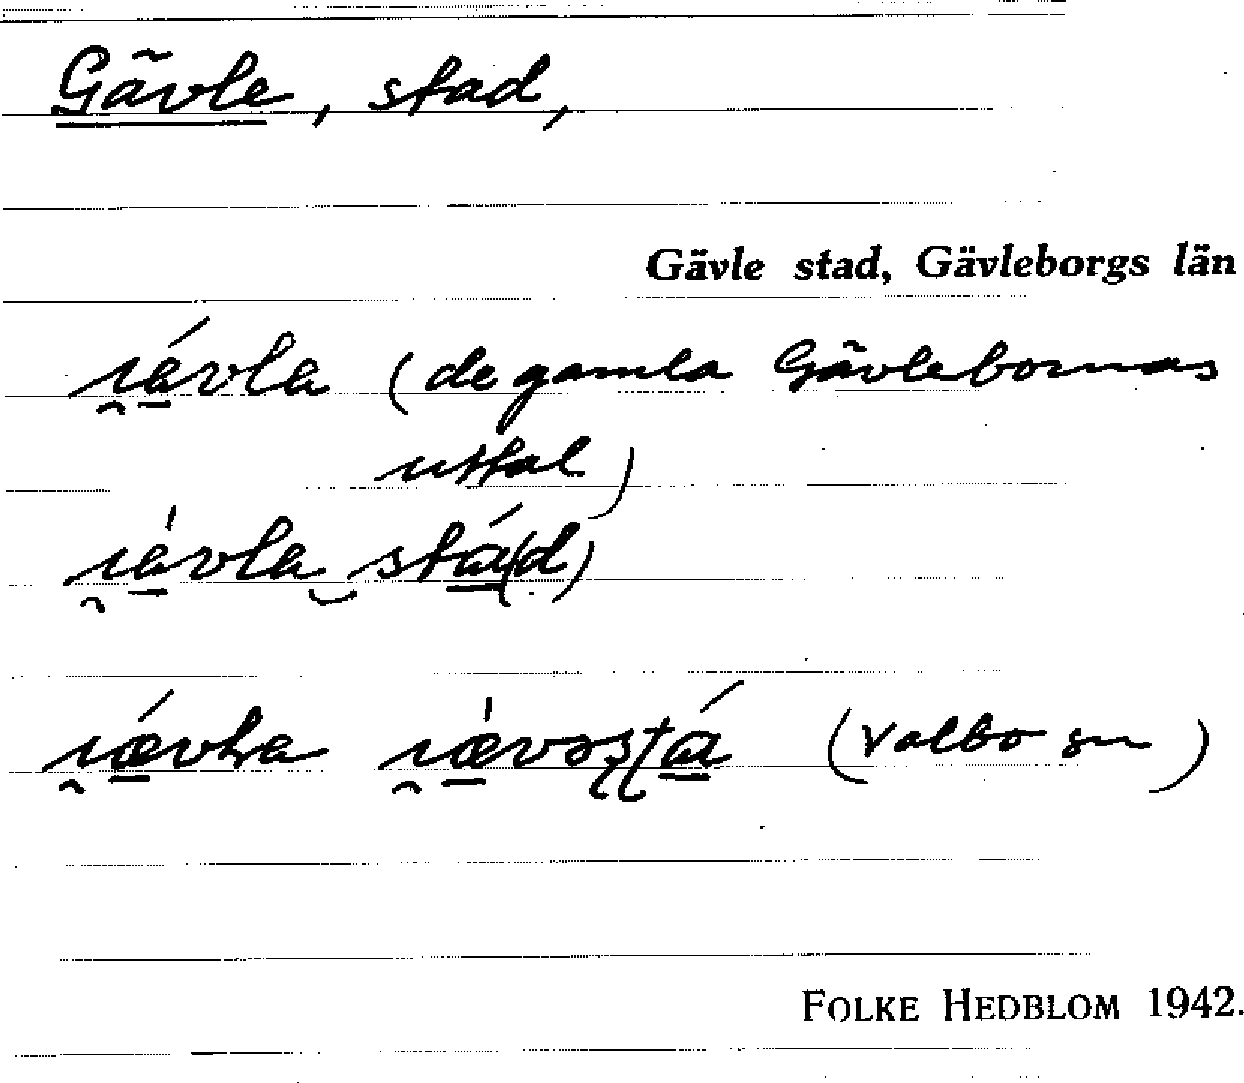 Gävle, stad,
Gävle stad, Gävleborgs län
i̯ävla (de gamla Gävlebornas
uttal)
i̯ävla stá(d)
(Valbo sn)
FOLKE HEDBLOM 1942.